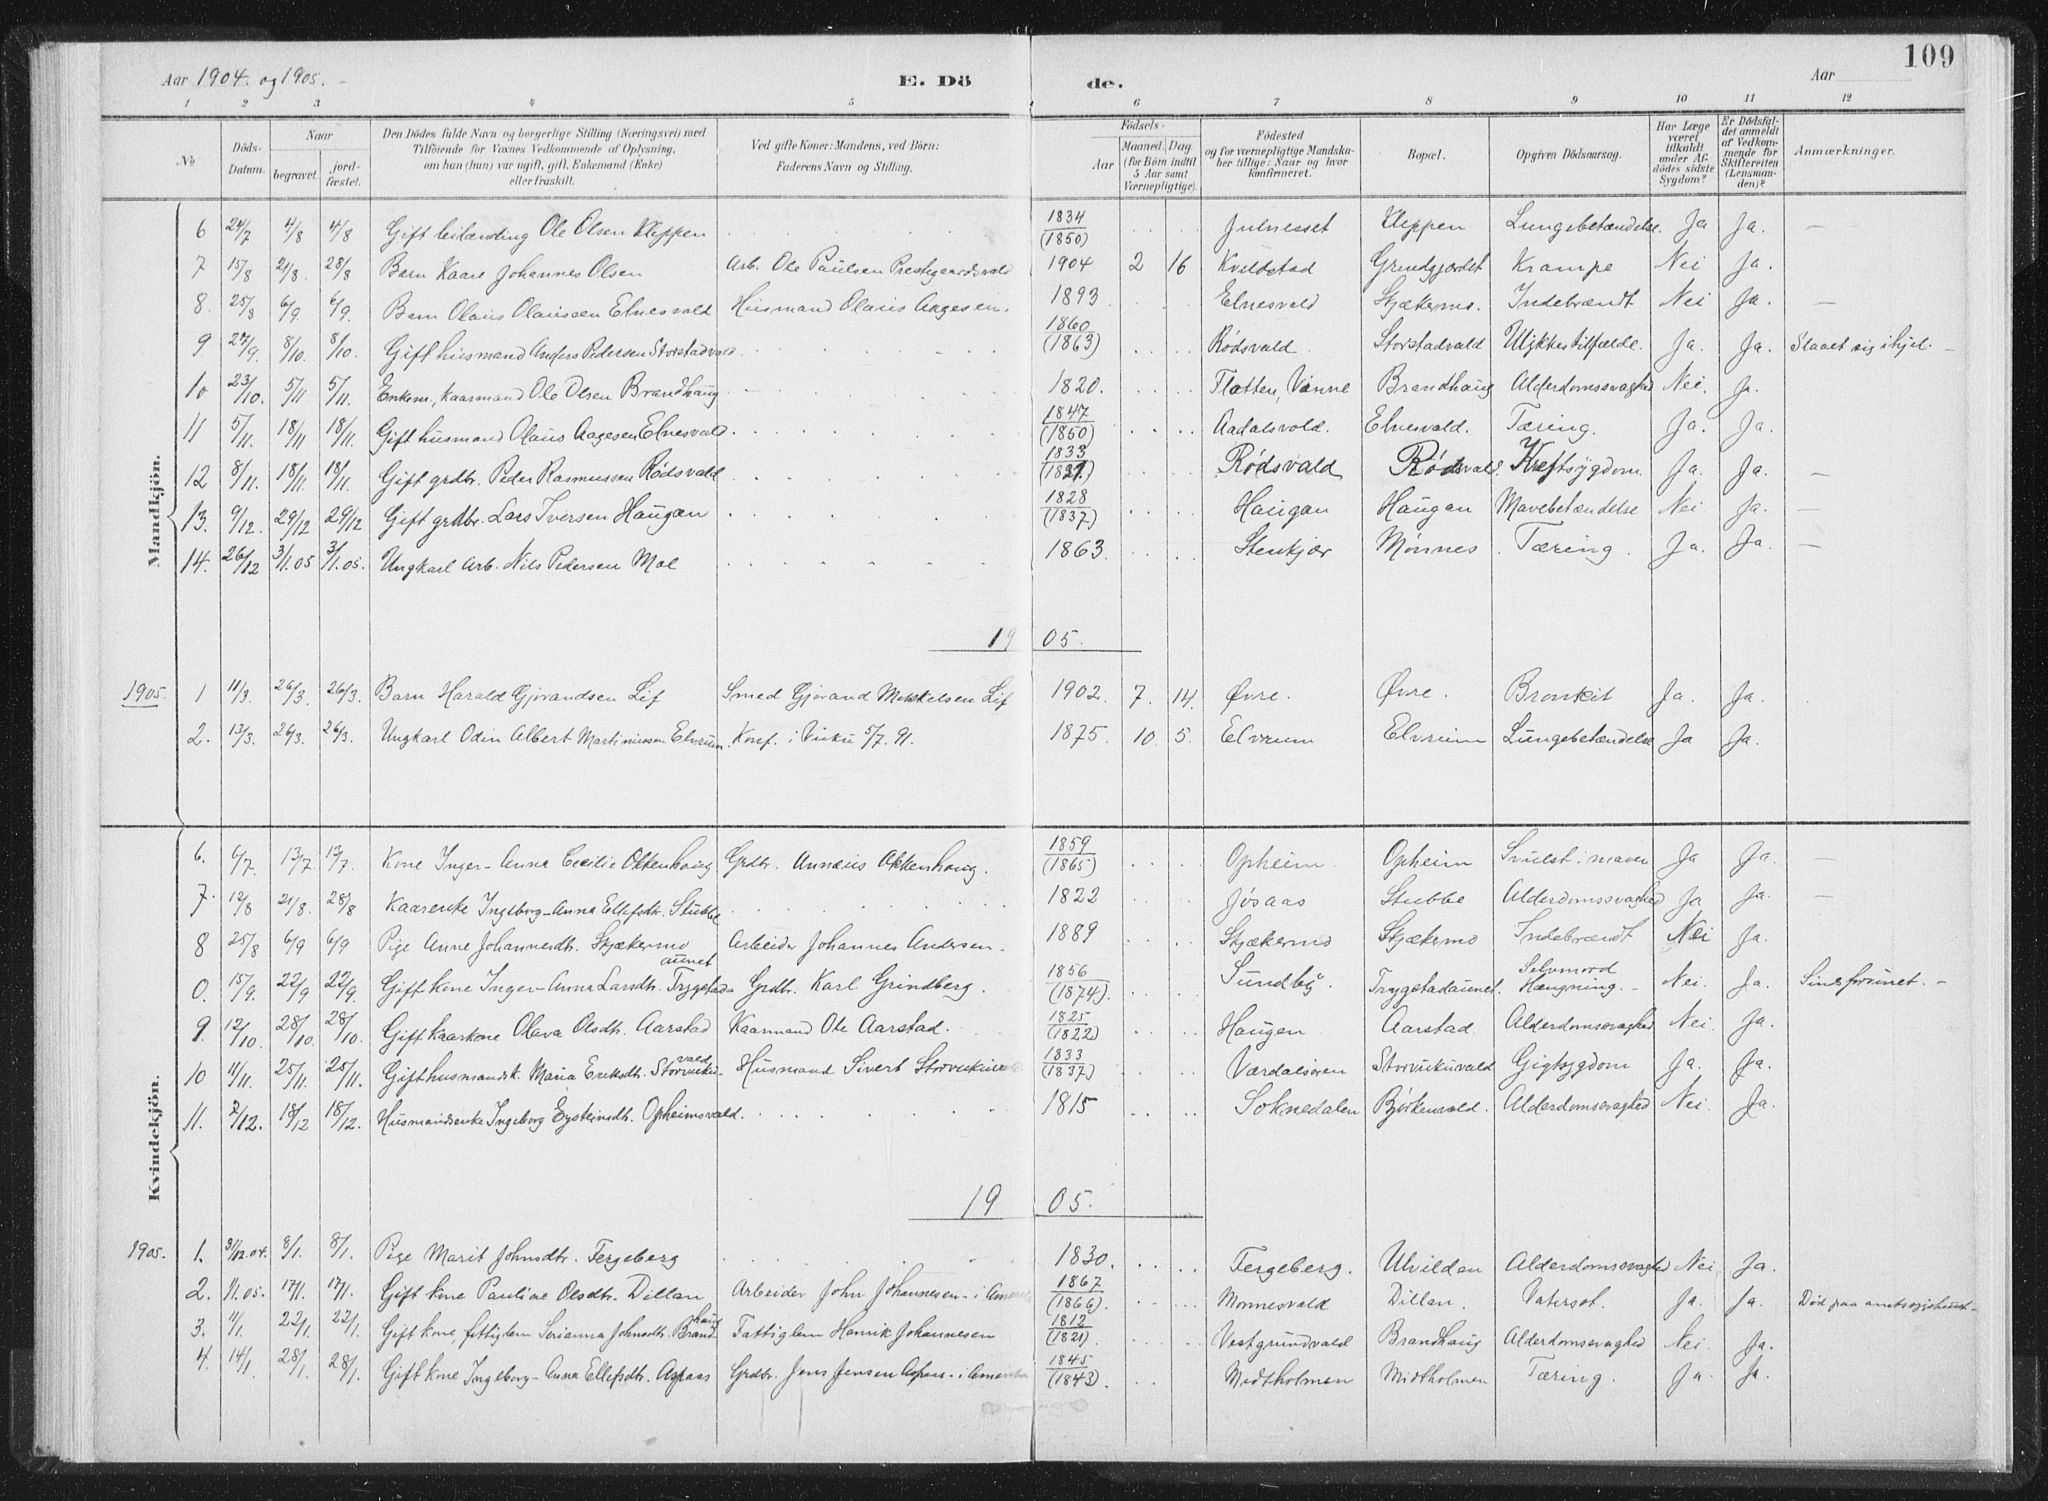 109
Aar 1904. og 1905. E. Dö de. Aar
1 2 3 4 5 6 7 8 9 10 11 12
№ Döds-Datum. Naar begravet. jordfæstet. Den Dödes fulde Navn og borgerlige Stilling (Næringsvei) med Tilföiende for Voxnes Vedkommende af Oplysning, om han (hun) var ugift, gift, Enkemand (Enke) eller fraskilt. Ved gifte Koner: Mandens, ved Börn: Faderens Navn og Stilling. Födsels- Aar Maaned, Dag (for Börn indtil 5 Aar samt Værnepligtige). Födested og for værnepligtige Mandskaber tillige: Naar og hvor konfirmeret. Bopæl. Opgiven Dödsaarsag. Har Læge været tilkaldt under Afdödes sidste Sygdom? Er Dödsfaldet anmeldt af Vedkommende for Skifteretten (Lensmanden)? Anmærkninger.
Mandkjön.
6 24/7 4/8 4/8 Gift Ole Olsen Kleppen 1834 (1850) Julnesset Kleppen Lungebetændelse. Ja Ja. —
7 15/8 21/8. 28/8 Barn Kaare Johannes Olsen Arb. Ole Paulsen Prestegaardsvald 1904 2 16 Kvelstad Grundgjærdet Krampe Nei Ja.
8. 25/8 6/9. 6/9. Barn Olaus Olaussen Elnesvald Husmand Olaus Aagesen. 1893 Elnesvald Skjækermo. Indebrændt Nei Ja. —
9 27/9. 8/10. 8/10. Gift husmand Anders Pedersen Storstadvald 1860 (1863) Rødsvald. Storstadvald Ulykkestilfælde. Ja. Ja. Slaaet sig ihjel. —
10 23/10. 5/11 5/11. Enkem, kaarmand Ole Olsen Brandhaug 1820. Flotten, Vinne Brandhaug Alderdomssvaghed Nei. Ja.
11 5/11. 18/11 18/11. Gift husmand Olaus Aagesen Elnesvald. 1847 (1850) Aadalsvold. Elnesvald. Tæring. Ja. Ja.
12 8/11. 18/11 18/11. Gift grdbr. Peder Rasmussen Rødsvald 1833 Rødsvald Rødsvald. Kræftsygdom Ja. Ja. —
13. 9/12. 29/12 29/12 Gift grdbr. Lars Iversen Haugan 1828 (1837) Haugan Haugan Mavebetændelse Nei. Ja. —
14. 26/12 3/1.05 3/1.05. Ungkarl Arb. Nils Pedersen Mol 1863. Stenkjær Mønnes. Tæring. Ja. Ja. —
19 05.
1905. 1 11/3. 26/3. 26/3. Barn Harald Gjørandsen Lif Smed Gjørand Mikkelsen Lif 1902. 7. 14. Øvre. Øvre. Bronkit Ja. Ja.
2. 13/3. 26/3. 26/3. Ungkarl Odin Albert Martinussen Elvrum. Konf. i Vuku 5/7. 91. 1875. 10. 5. Elvrum Elvrum Lungebetændelse Ja Ja.
Kvindekjön.
6. 6/7. 13/7. 13/7. Kone Inger-Anna Cecilie Okkenhaug Grdbr. Annæus Okkenhaug. 1859 (1865) Opheim Opheim Svulst i maven Ja Ja. —
7. 12/8 21/8. 28/8 Kaarenke Ingeborg-Anna Ellefsdtr. Stubbe 1822 Jøsaas Stubbe Alderdomssvaghed Ja Ja. —
8 25/8 6/9 6/9 Pige Anne Johannesdtr. Skjækermo Arbeider Johannes Andersen. 1889 Skjækermo Skjækermo Indebrændt Nei Ja.
0. 15/9. 22/9 22/9. Gift kone Inger-Anna Larsdtr. Trygstadaunet Grdbr. Karl Grindberg. 1856 (1874). Sundby. Trygstadaunet. Selvmord Hængning. Nei. Ja. Sindsforvirret. —
9. 12/10. 28/10. 28/10. Gift kaarkone Olava Olsdtr. Aarstad Kaarmand Ole Aarstad. 1825 (1822) Haugen Aarstad Alderdomssvaghed Nei. Ja.
10 11/11. 25/11. 25/11. Gift husmandsk. Maria Eriksdtr. Storvukuvald Husmand Sivert Storvuku 1833 (1837) Værdalsøren Storvukuvald Gigtsygdom Ja. Ja.
11. 7/12. 18/12 18/12. Husmandsenke Ingeborg Eysteinsdtr. Opheimsvald. 1815 Soknedalen Bjørkenvald. Alderdomssvaghed Nei. Ja.
19 05.
1905. 1. 31/12.04. 8/1. 8/1. Pige Marit Johnsdtr. Fergeberg 1830. Fergeberg. Ulvildan Alderdomssvaghed Nei Ja.
2. 1/1.05. 17/1. 17/1. Gift kone Pauline Olsdtr. Dillan Arbeider John Johannesen - i Amerika 1867 (1866). Monnesvald Dillan. Vatersot. Ja. Ja. Død paa amtssygehuset. -
3. 11/1. 22/1. 22/1. Gift kone, fattiglem Serianna Johnsdtr. Brandhaug Fattiglem Henrik Johannesen 1812 (1821). Vestgrundvald Brandhaug Alderdomssvaghed Nei. Ja.
4. 14/1. 28/1. 28/1. Gift kone Ingeborg-Anna Ellefsdtr. Aspaas Grdbr. Jens Jensen Aspaas - i Amerika 1845 (1843). Midtholmen Midtholmen Tæring. Ja. Ja.